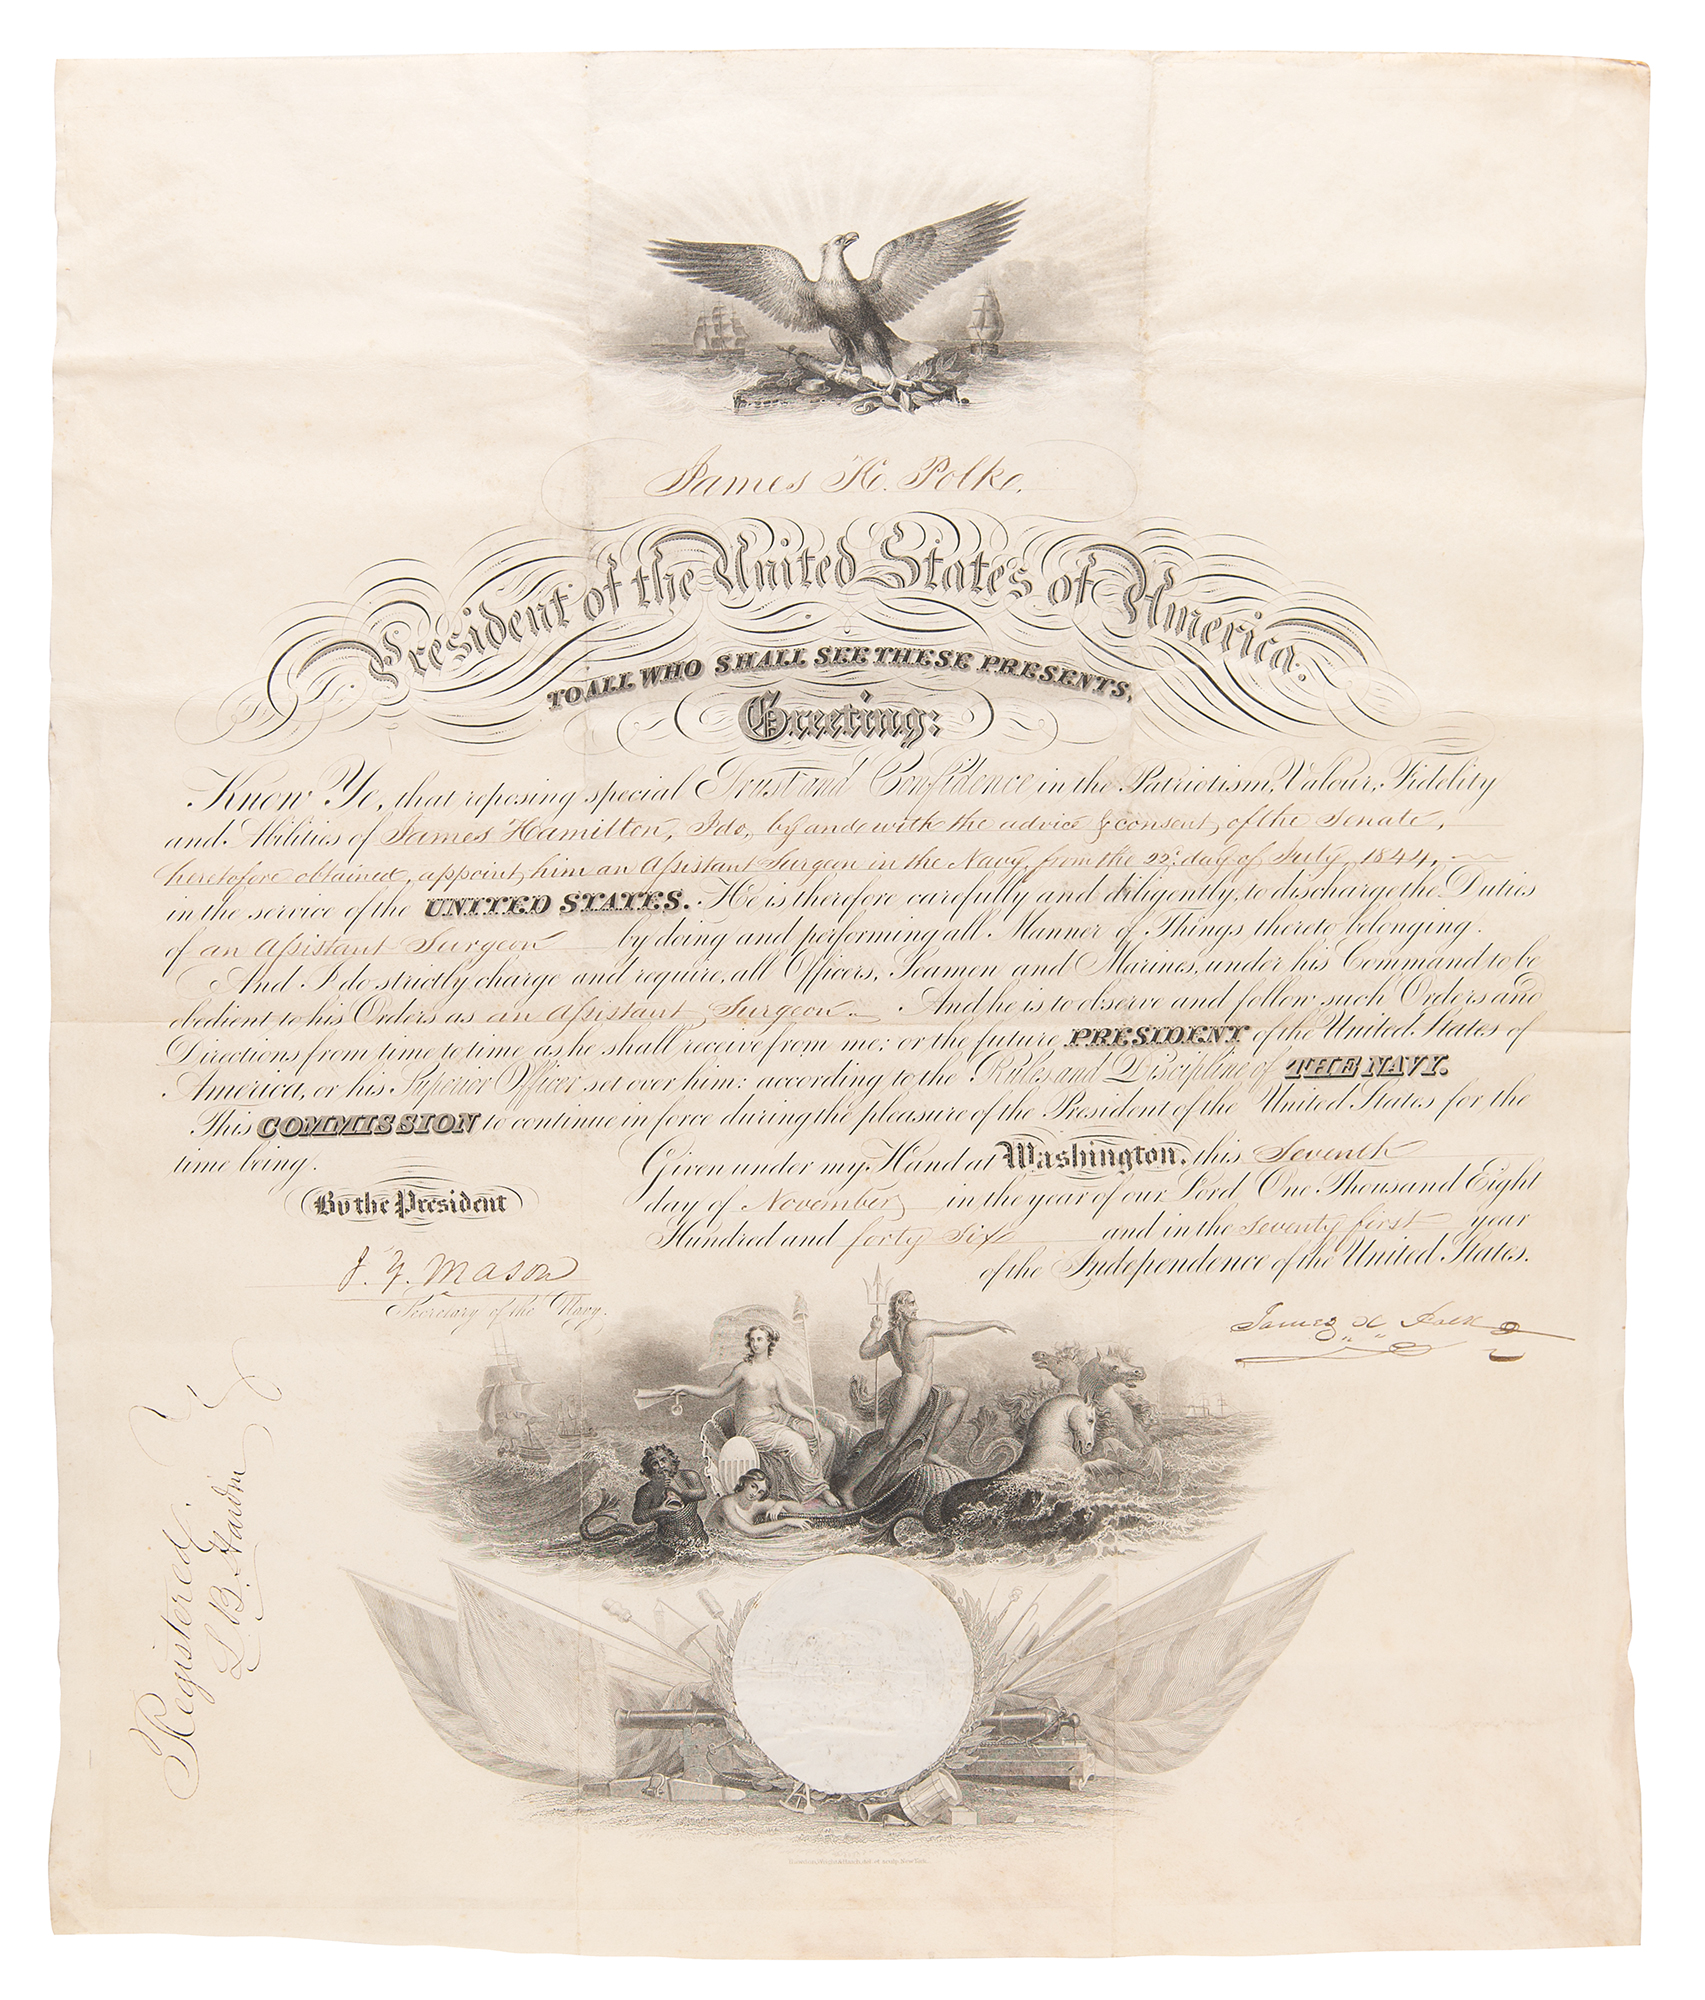 James K. Polk.
President of the United States of America.
TO ALL WHO SHALL SEE THESE PRESENTS,
Greeting:
Know Ye, that reposing special Trust and Confidence in the Patriotism, Valour, Fidelity
and Abilities of James Hamilton, I do, by and with the advice & consent of the Senate,
heretofore obtained, appoint him an Assistant Surgeon in the Navy, from the 22d. day of July, 1844,
in the service of the UNITED STATES. He is therefore carefully and diligently, to discharge the Duties
of an Assistant Surgeon by doing and performing all Manner of Things thereto belonging.
And I do strictly charge and require, all Officers, Seamen and Marines, under his Command to be
obedient to his Orders as an Assistant Surgeon. And he is to observe and follow such Orders and
Directions from time to time as he shall receive from me: or the future PRESIDENT of the United States of
America, or his Superior Officer set over him: according to the Rules and Discipline of THE NAVY.
This COMMISSION to continue in force during the pleasure of the President of the United States for the
time being.
Given under my Hand at Washington, this Seventh
day of November in the year of our Lord One Thousand Eight
Hundred and forty Six and in the seventy first year
of the Independence of the United States.
By the President
J. Y. Mason
Secretary of the Navy.
James K Polk
Registered.
L. B. Hardin